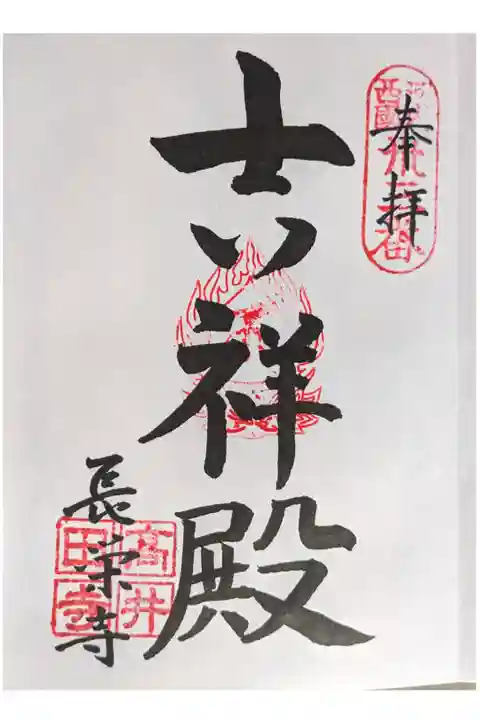 奉拝
吉祥殿
長栄寺
高井
田寺